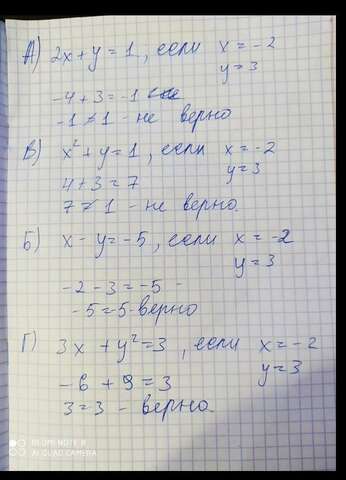 А) 2x + y = 1, если x = -2
y = 3
-4 + 3 = -1
-1 ≠ 1 - не верно
В) x² + y = 1, если x = -2
y = 3
4 + 3 = 7
7 ≠ 1 - не верно.
Б) x - y = -5, если x = -2
y = 3
-2 - 3 = -5
-5 = -5 верно
Г) 3x + y² = 3, если x = -2
y = 3
-6 + 9 = 3
3 = 3 - верно.
REDMI NOTE 8
AI QUAD CAMERA